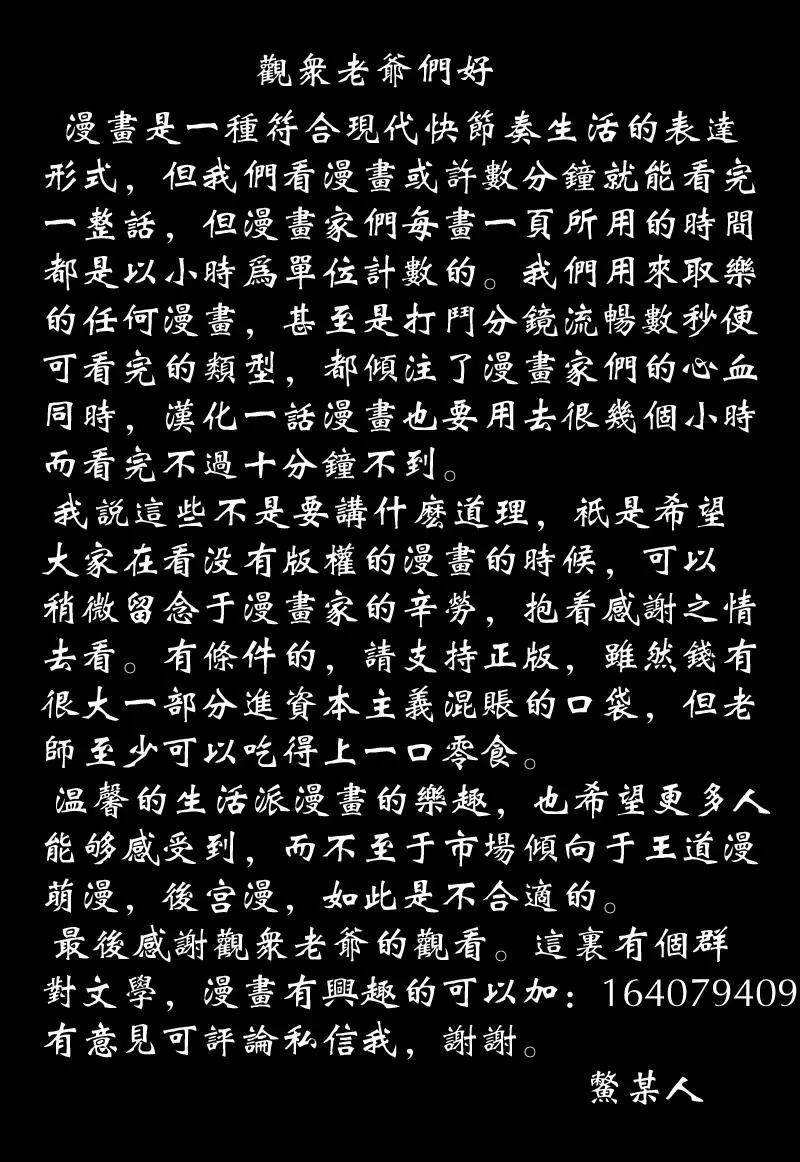 觀衆老爺們好
漫畫是一種符合現代快節奏生活的表達
形式，但我們看漫畫或許數分鐘就能看完
一整話，但漫畫家們每畫一頁所用的時間
都是以小時爲單位計數的。我們用來取樂
的任何漫畫，甚至是打鬥分鏡流暢數秒便
可看完的類型，都傾注了漫畫家們的心血
同時，漢化一話漫畫也要用去很幾個小時
而看完不過十分鐘不到。
我説這些不是要講什麽道理，祇是希望
大家在看没有版權的漫畫的時候，可以
稍微留念于漫畫家的辛勞，抱着感謝之情
去看。有條件的，請支持正版，雖然錢有
很大一部分進資本主義混賬的口袋，但老
師至少可以吃得上一口零食。
温馨的生活派漫畫的樂趣，也希望更多人
能够感受到，而不至于市場傾向于王道漫
萌漫，後宫漫，如此是不合適的。
最後感謝觀衆老爺的觀看。這裏有個群
對文學，漫畫有興趣的可以加：164079409
有意見可評論私信我，謝謝。
鰲某人